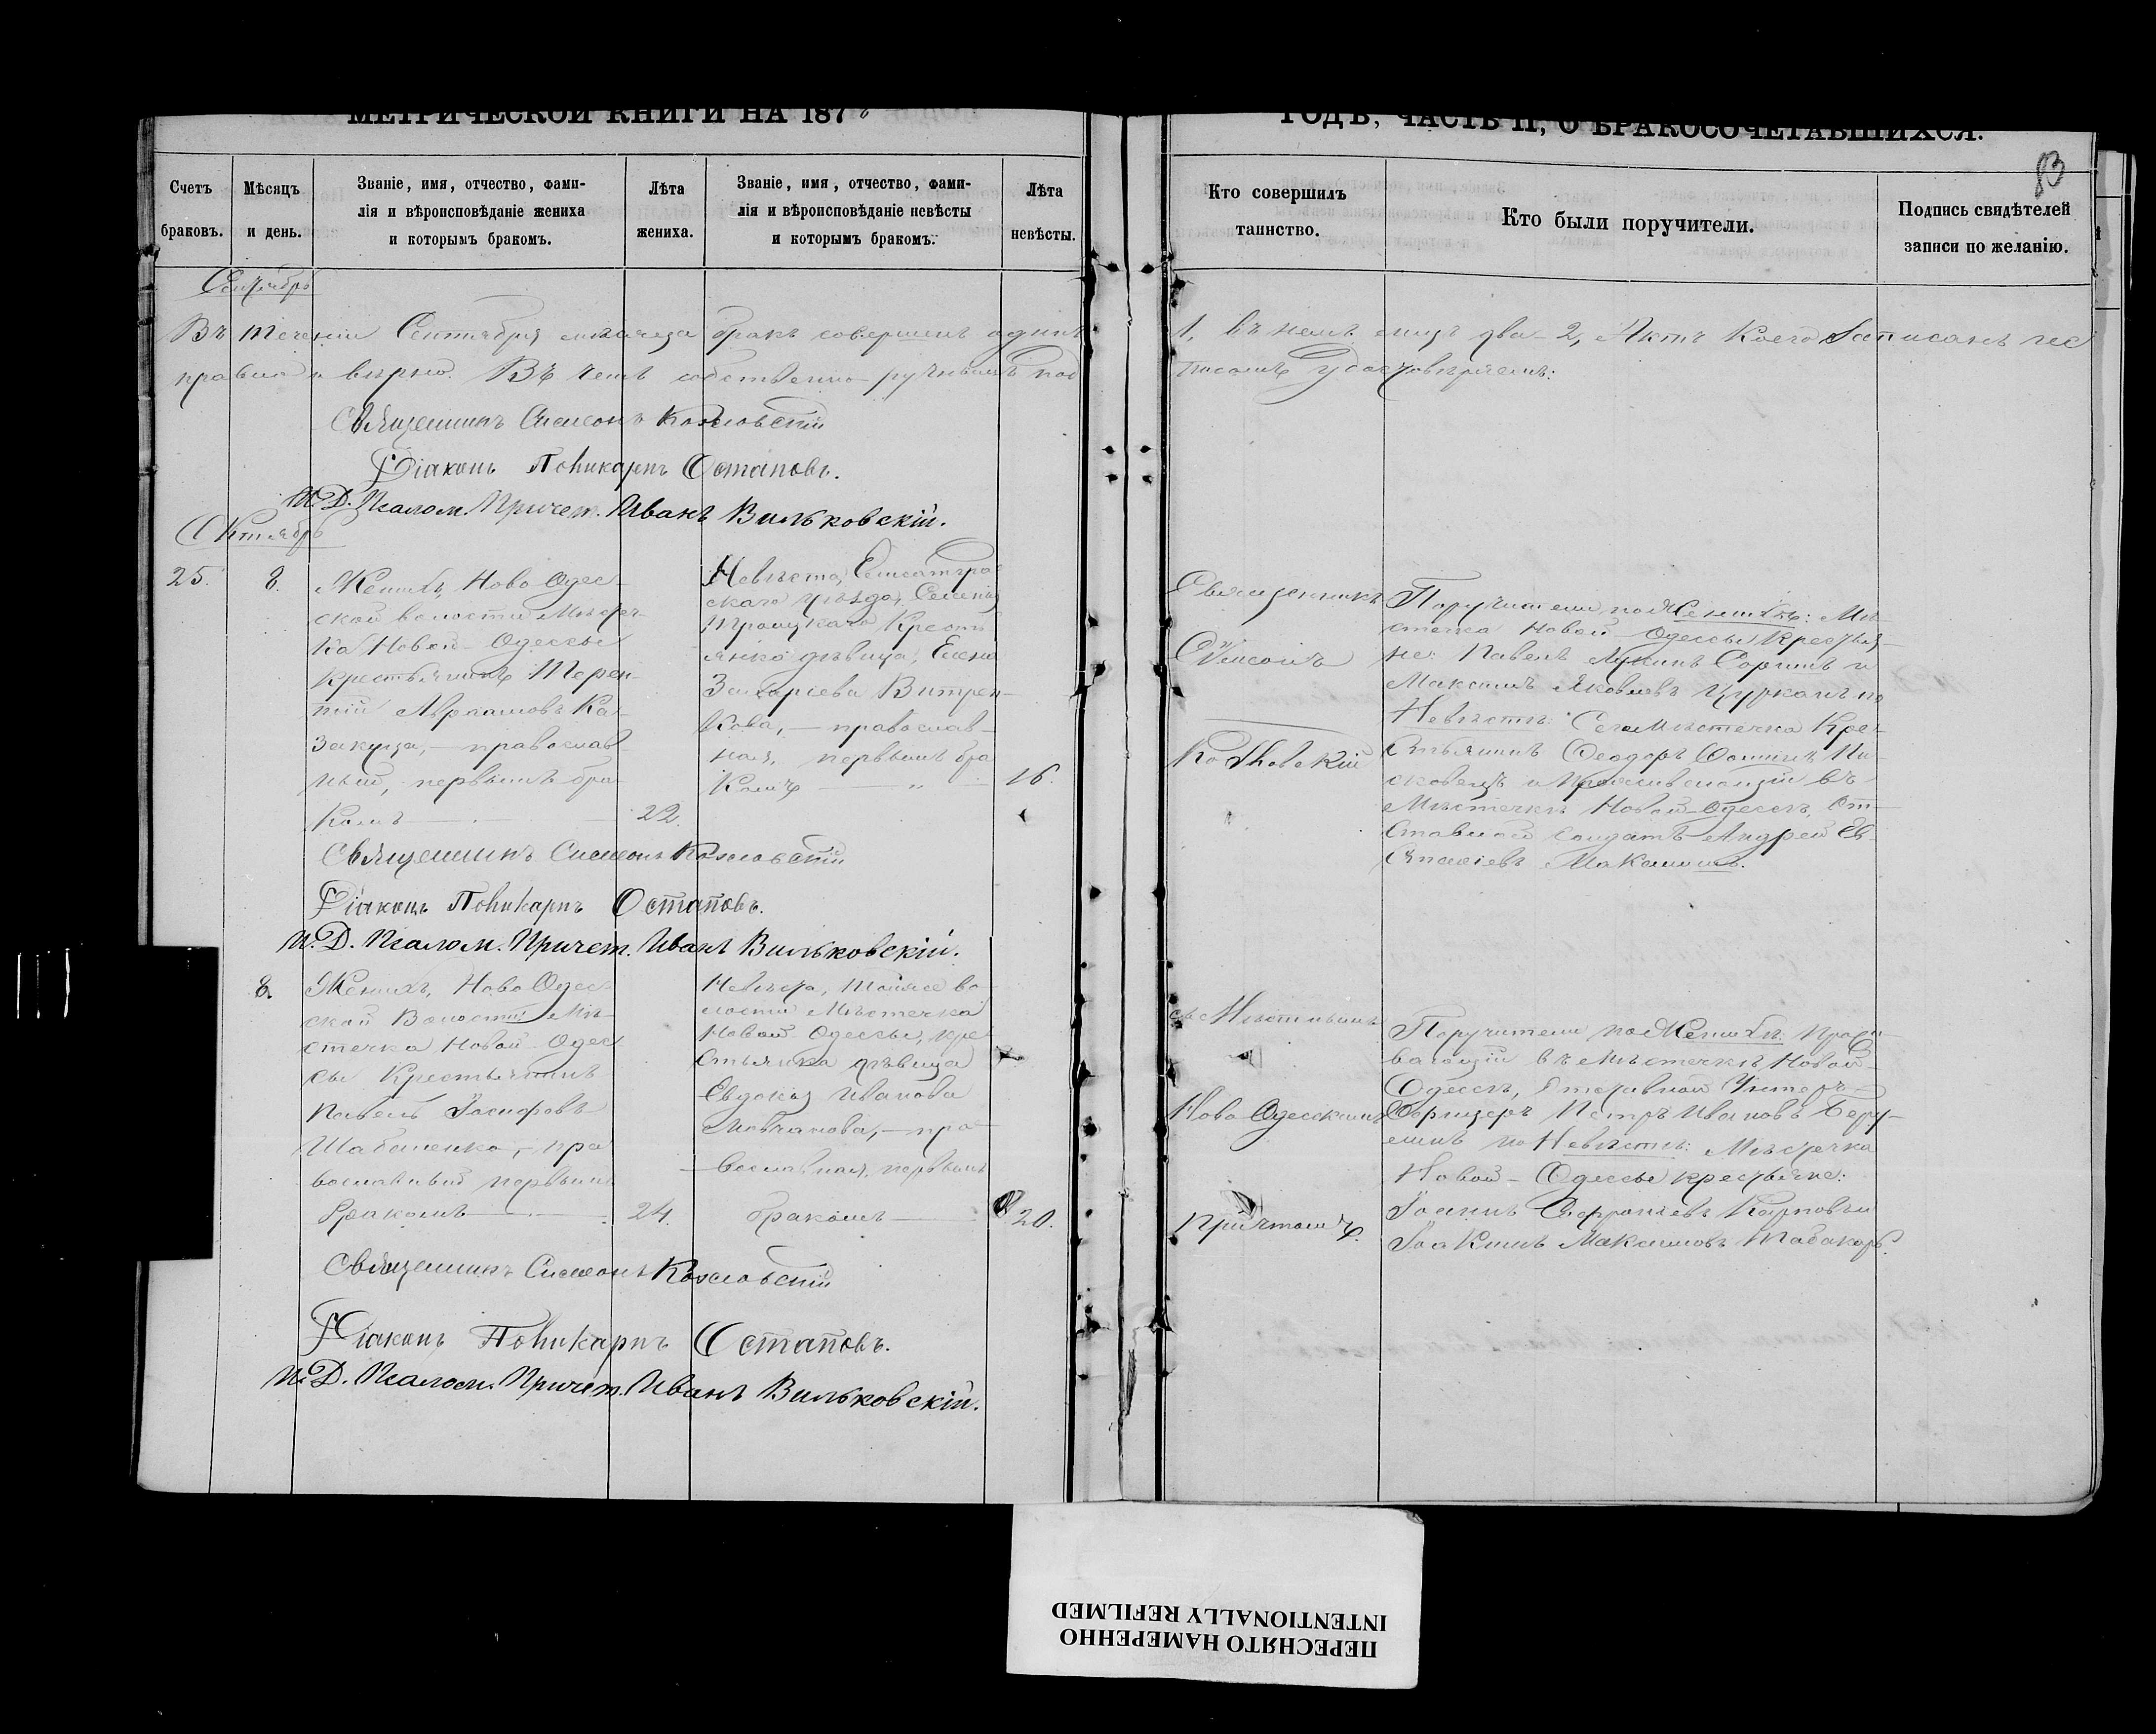 МЕТРИЧЕСКОЙ КНИГИ НА 187
ГОДЪ, ЧАСТЬ II, О БРАКОСОЧЕТАВШИХСЯ.
83
Счетъ браковъ.
Мѣсяцъ и день.
Званіе, имя, отчество, фами-
лія и вѣроисповѣданіе жениха
и которымъ бракомъ.
Лѣта жениха.
Званіе, имя, отчество, фами-
лія и вѣроисповѣданіе невѣсты
и которымъ бракомъ.
Лѣта невѣсты.
Кто совершилъ
таинство.
Кто были поручители.
Подпись свидѣтелей
записи по желанію.
Сентябрь
Въ теченіи Сентября мѣсяца бракъ совершенъ одинъ 1, въ немъ лицъ два 2, Актъ коего записанъ
правильно и вѣрно. Въ чемъ собственно-ручнымъ под писомъ удостовѣряемъ:
Священникъ Симеонъ Козловскій
Діаконъ Поликарпъ Остаповъ.
И.Д. Псалом. Причет. Иванъ Вильковскій.
Октябрь
25.
8.
Женихъ, Ново Одес-
ской волости Мѣстеч-
ка Новой-Одессы
крестьянинъ Терен-
тій Аврамовъ Ка-
закуца, - православ
ный, первымъ бра
комъ
22.
Невѣста, Елисаветград
скаго уѣзда,
Троицкаго Крестъ
янка дѣвица, Елена
Захаріева Витрен-
кова, - православ-
ная, первымъ бра
комъ
16.
Священникъ
Симеонъ
Козловскій
Поручители по Женихѣ: Мѣ
стечка Новой-Одессы крестья-
не: Павелъ Соринъ и
Максимъ Яковлевъ Цурканъ по
Невѣстѣ: Сего Мѣстечка Кре-
стьянинъ Ѳеодоръ Ѳоминъ Пи-
сковецъ и проживающій въ
Мѣстечкѣ Новой-Одессѣ, От-
ставной солдатъ Андрей Ев
стасіевъ
Священникъ Симеонъ Козловскій
Діаконъ Поликарпъ Остаповъ.
И.Д. Псалом. Причет. Иванъ Вильковскій.
8.
Женихъ, Ново Одес-
ской Волости Мѣ-
стечка Новой-Одес
сы Крестьянинъ
Павелъ Іосифовъ
Шабаненко, - пра
вославный первымъ
бракомъ
24.
Невѣста, тойже во-
лости Мѣстечка
Новой-Одессы, кре
стьянка дѣвица
Евдокія Иванова
Мовчанова, - пра
вославная, первымъ
бракомъ
20.
съ Мѣстнымъ
Ново Одесскимъ
причтомъ.
Поручители по Женихѣ: прожи
вающій въ Мѣстечкѣ Новой-
Одессѣ, Отставной Унтеръ-
Офицеръ Петръ Ивановъ Беру-
по Невѣстѣ: Мѣстечка
Новой-Одессы крестьяне:
Іоаннъ Софроніевъ Карповъ и
Іоакимъ Максимовъ Табакарь.
Священникъ Симеонъ Козловскій
Діаконъ Поликарпъ Остаповъ.
И.Д. Псалом. Причет. Иванъ Вильковскій.
ПЕРЕСНЯТО НАМЕРЕННО
INTENTIONALLY REFILMED